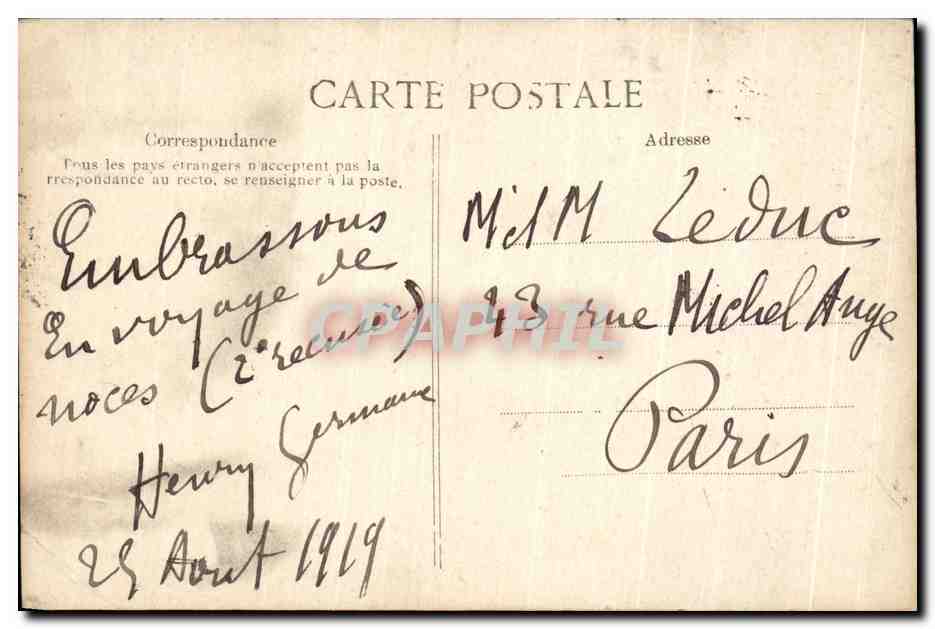 CARTE POSTALE
Correspondance
Tous les pays étrangers n'acceptent pas la
rrespondance au recto, se renseigner à la poste.
Embrassons
En voyage de
noces (2e
Henry Germaine
25 Aout 1919
Adresse
M et M Leduc
43 rue Michel Ange
Paris
CPAPHIL